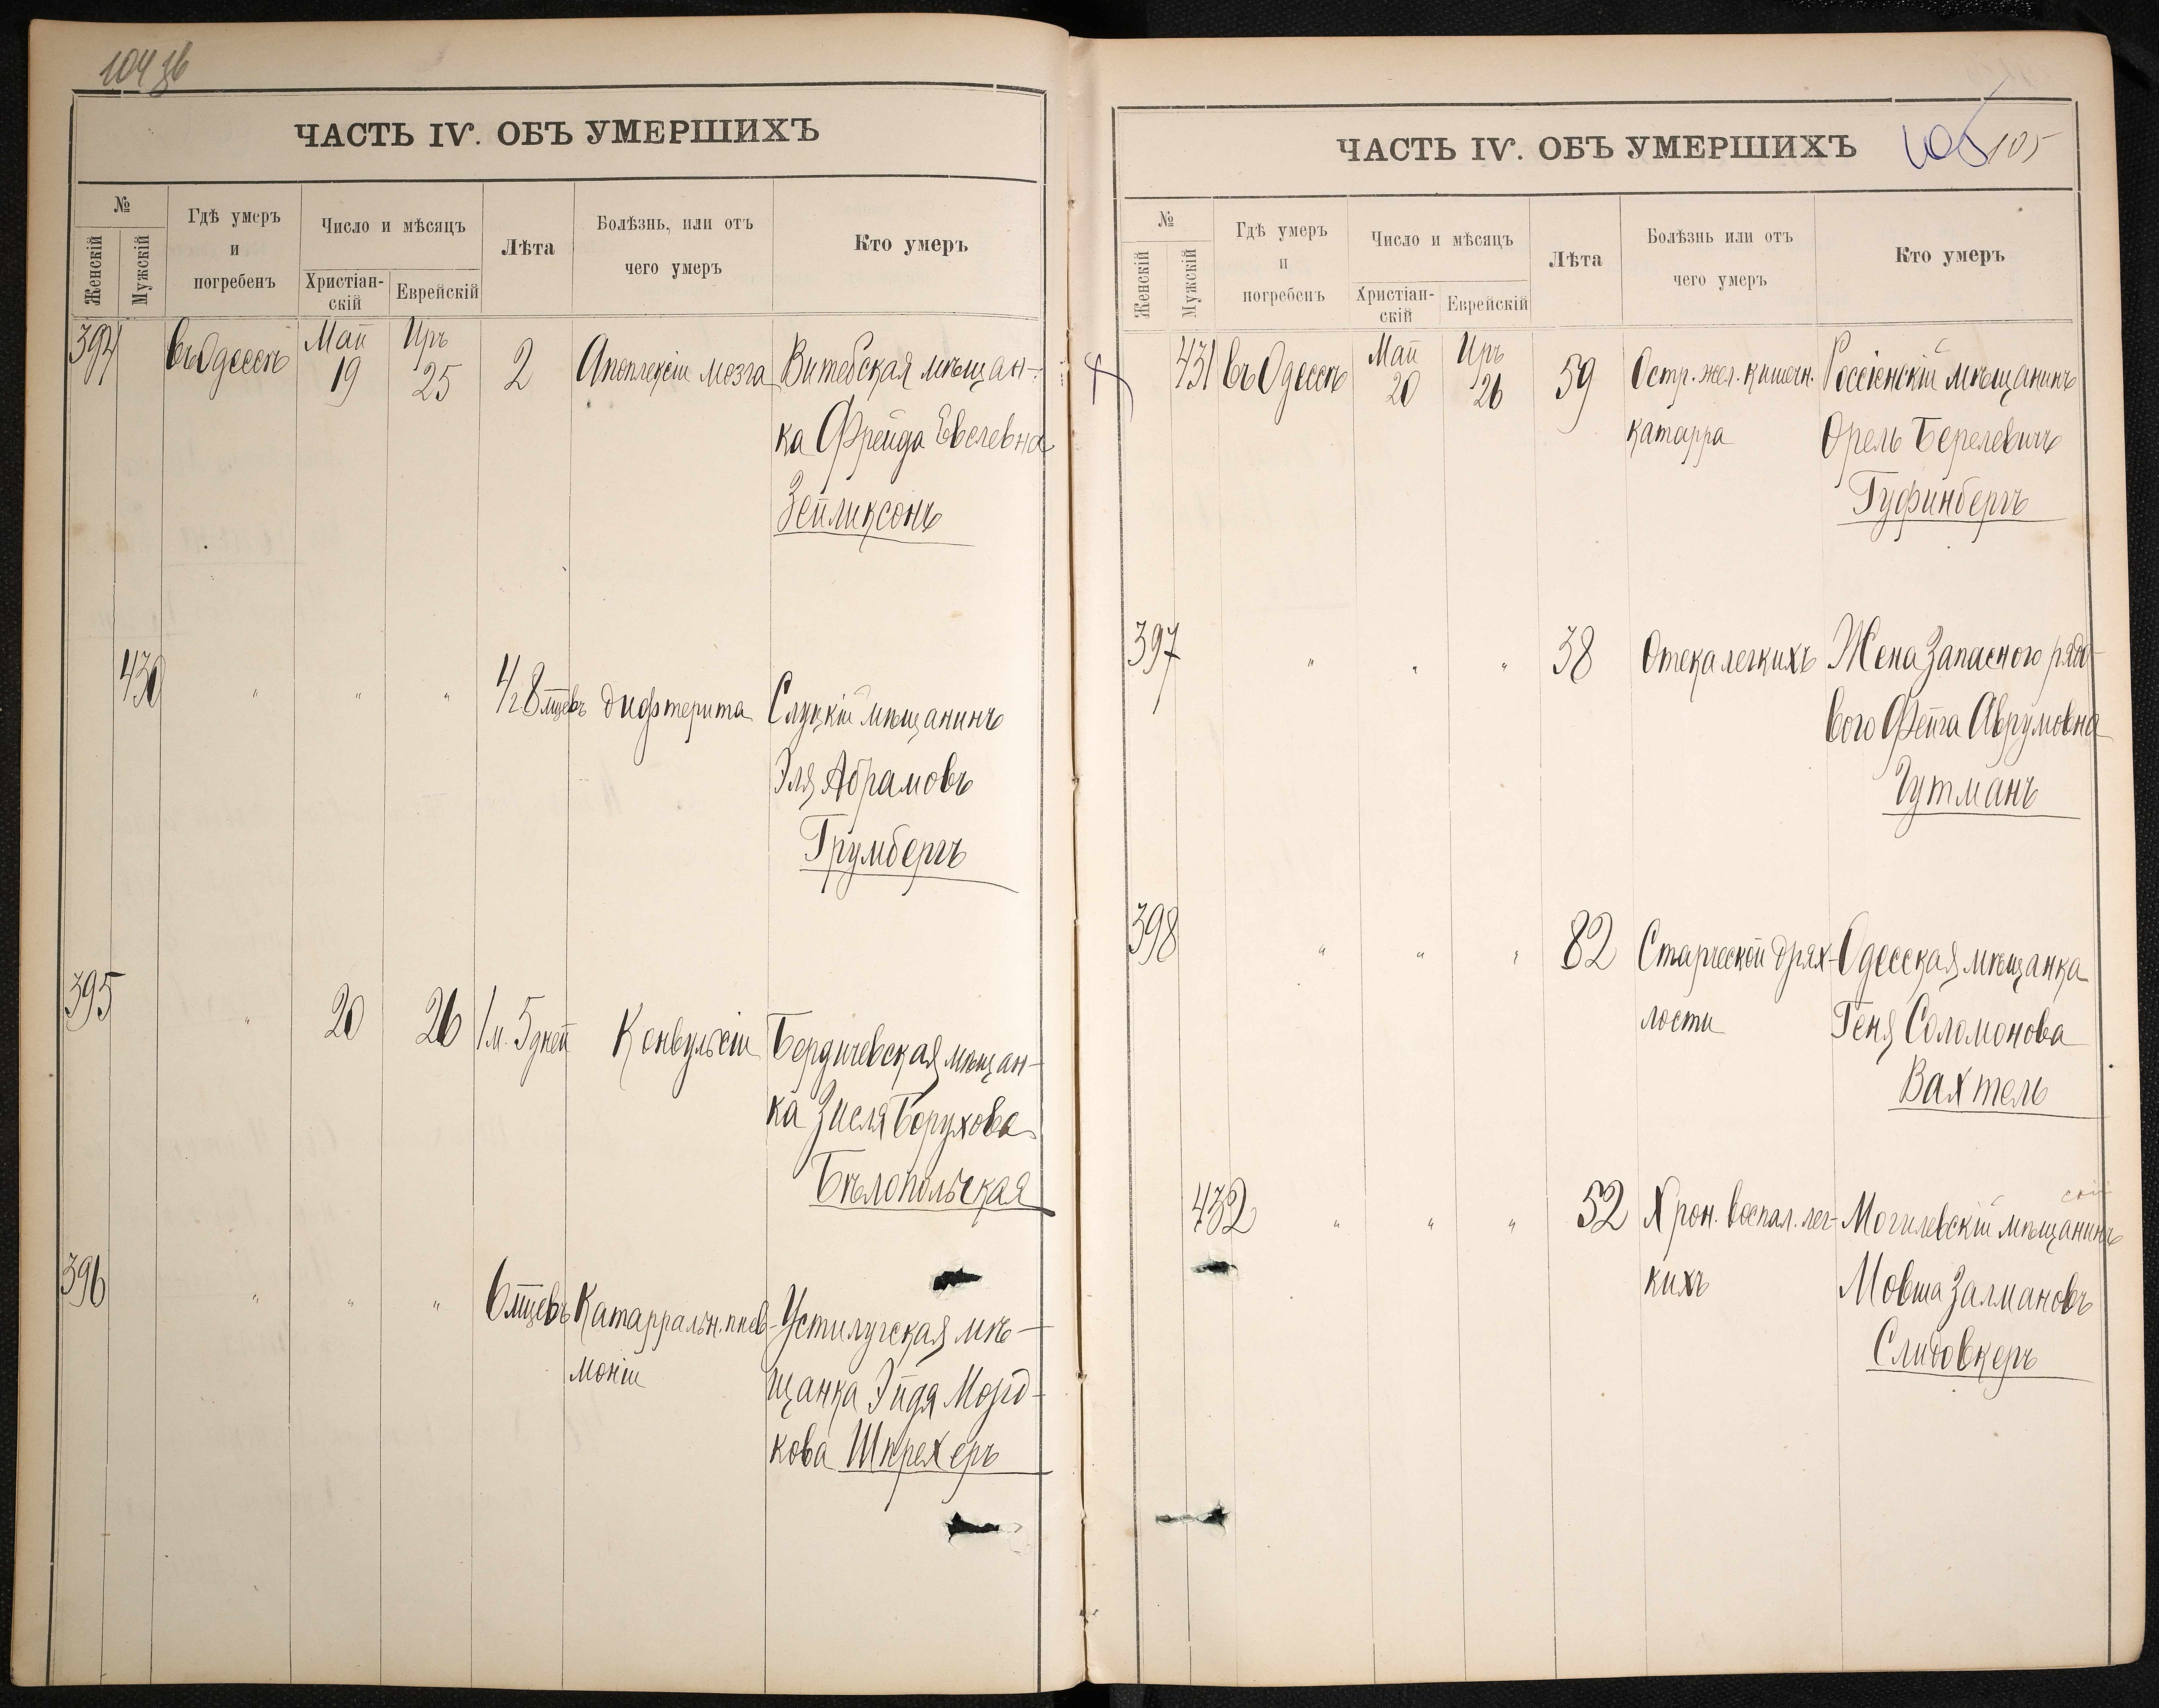 104 об
ЧАСТЬ IV. ОБЪ УМЕРШИХЪ
№
Женскій
Мужскій
Гдѣ умеръ
и
погребенъ
Число и мѣсяцъ
Христіан-
скій
Еврейскій
Лѣта
Болѣзнь, или отъ
чего умеръ
Кто умеръ
394 въ Одессѣ Май 19 Иръ 25 2 Апоплексіи мозга Витебская мѣщан-
ка Фрейда Евелевна
Зейликсонъ
430 " " " 4/г 8 мцевъ дифтерита Слуцкій мѣщанинъ
Эля Абрамовъ
Грумбергъ
395 " 20 26 1 м. 5 дней Конвульсіи Бердичевская мѣщан-
ка Зисля Борухова
Бѣлопольская
396 " " " 6 мцевъ Катарральн. пнев- Устилугская мѣ-
моніи щанка Эйдя Морд-
кова Шпрехеръ
ЧАСТЬ IV. ОБЪ УМЕРШИХЪ
105 105
№
Женскій
Мужскій
Гдѣ умеръ
и
погребенъ
Число и мѣсяцъ
Христіан-
скій
Еврейскій
Лѣта
Болѣзнь или отъ
чего умеръ
Кто умеръ
431 въ Одессѣ Май 20 Иръ 26 59 Остр. жел. кишечн. Россіенскій мѣщанинъ
катарра Орель Берелевичъ
Гуфинбергъ
397 " " " 38 Отека легкихъ Жена Запасного рядо-
вого Фейга Аврумовна
Гутманъ
398 " " " 82 Старческой дрях- Одесская мѣщанка
лости Геня Соломонова
Вахтель
432 " " " 52 Хрон. воспал. лег- Могилевскій мѣщанинъ
кихъ Мовша Залмановъ
Слидовкеръ